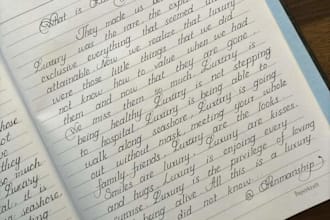 What is
They made us be
Luxury was the rare the exp
exclusive everything that seemed un
attainable Now we realize that luxury
were those little things that we did
not know how to value when we had
them and now that they are gone
We miss them so much Luxury is
being healthy Luxury is not stepping
to hospital Luxury is being able to
walk along seashore Luxury is going
out without mask meeting your whole
family friends Luxury are the looks
Smiles are luxury Luxury are kisses
and hugs Luxury is enjoying every
sunrise Luxury is the privilege of loving
being alive All this is a luxury
did not know
Penmanship
hose
they
much
Luxury
seashore